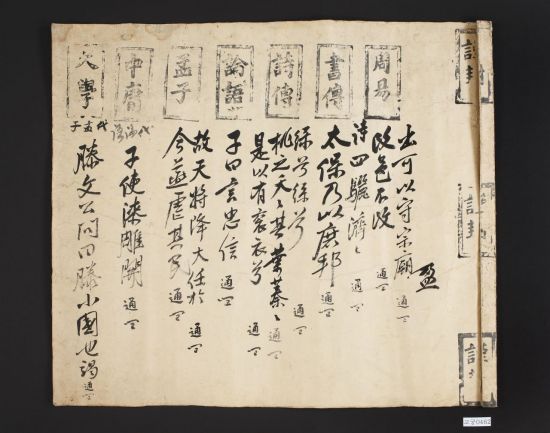 周易
書傳
詩傳
論語
孟子
中庸
大學
出可以守宗廟
改邑不改 通
詩四驪濟〻 通
太保乃以庶邦 通
綠兮絲兮 通
桃之夭〻其葉蓁〻 通
是以有袞衣兮 通
子曰言忠信 通
故天將降大任於 通
今燕虐其民 通
代論語
子使漆雕開 通
代孟子
滕文公問曰滕小國也竭 通
고궁0462